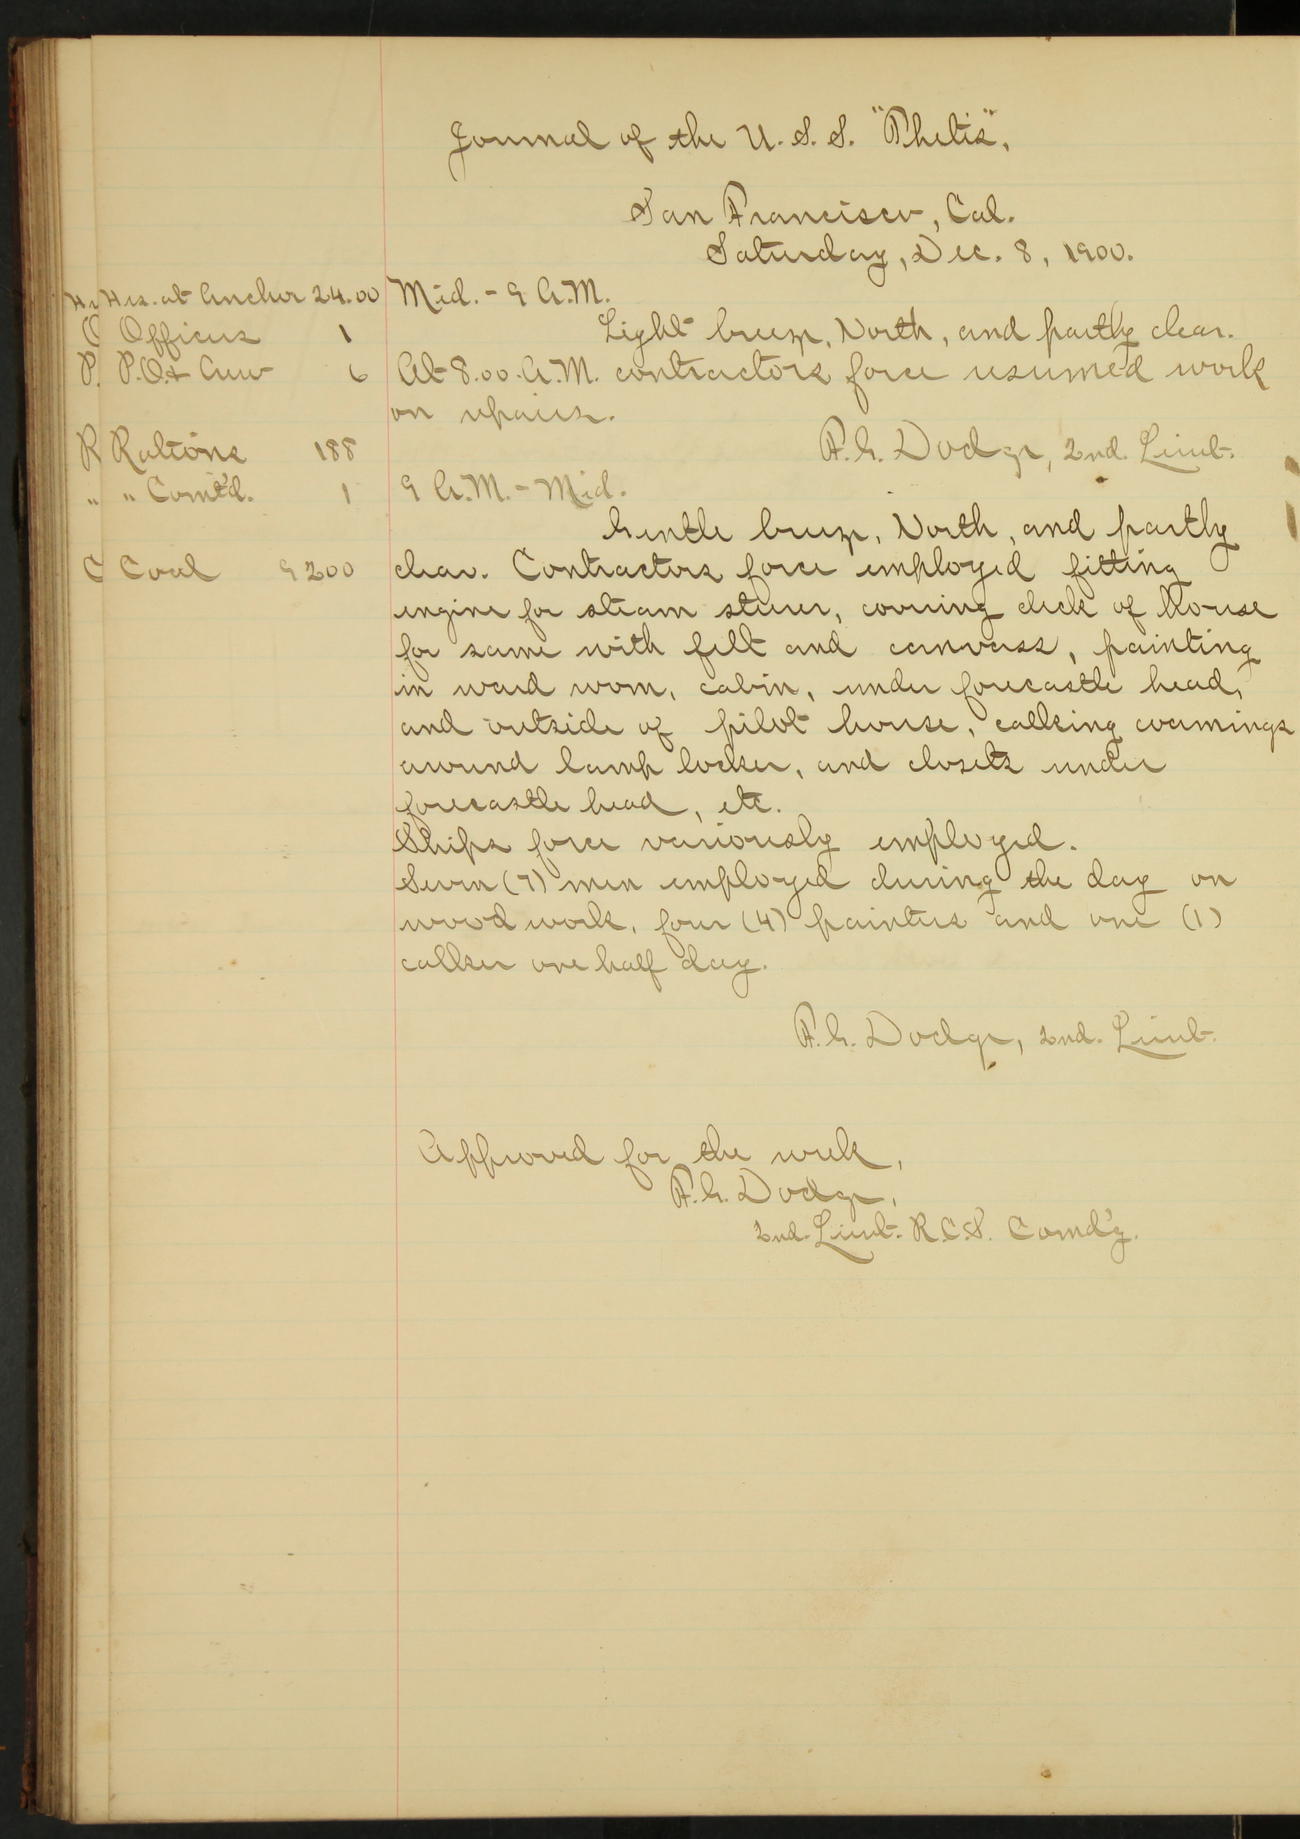 Journal of the U. S. S. "Thetis",
San Francisco, Cal.
Saturday, Dec. 8, 1900.
Hrs. at Anchor 24.00
Officers 1
P.O.& Crew 6
Rations 188
" Com't'd. 1
Coal 9200
Mid. - 9 A.M.
Light breeze, North, and partly clear.
At 8.00 A.M. contractors force resumed work
on repairs.
F.G. Dodge, 2nd. Lieut.
9 A.M. - Mid.
Gentle breeze, North, and partly
clear. Contractors force employed fitting
engine for steam steerer, covering deck of House
for same with felt and canvass, painting
in ward room, cabin, under forecastle head,
and outside of pilot house, calking coamings
around lamp locker, and closets under
forecastle head, etc.
Ships force variously employed.
Seven (7) men employed during the day on
wood work, four (4) painters and one (1)
calker one half day.
F.G. Dodge, 2nd. Lieut.
Approved for the week,
F.G. Dodge,
2nd. Lieut. R.C.S. Comd'g.